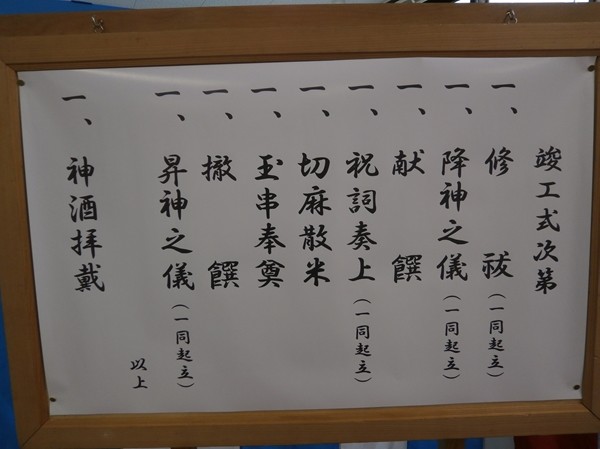 竣工式次第
一、修祓（一同起立）
一、降神之儀（一同起立）
一、献饌
一、祝詞奏上（一同起立）
一、切麻散米
一、玉串奉奠
一、撤饌
一、昇神之儀（一同起立）
以上
一、神酒拝戴